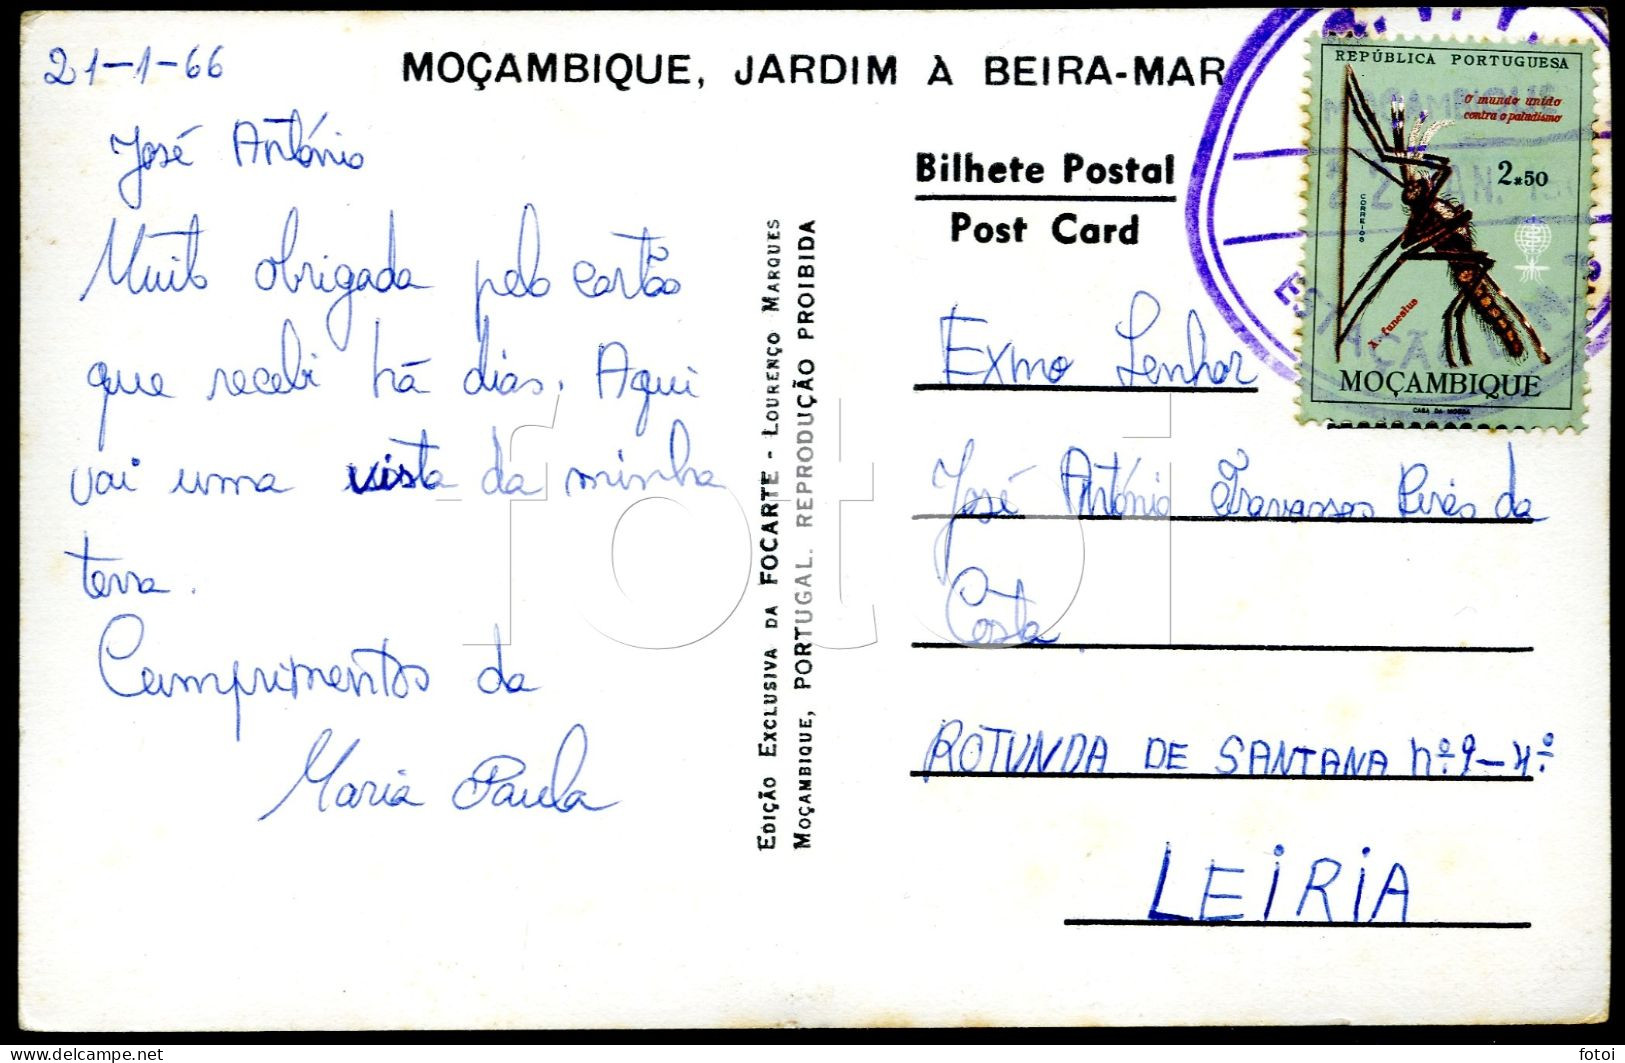 21-1-66
MOÇAMBIQUE, JARDIM À BEIRA-MAR
José António
Muito obrigada pelo cartão
que recebi há dias. Aqui
vai uma vista da minha
terra.
Cumprimentos da
Maria Paula
EDIÇÃO EXCLUSIVA DA FOCARTE - LOURENÇO MARQUES
MOÇAMBIQUE, PORTUGAL. REPRODUÇÃO PROIBIDA
Bilhete Postal
Post Card
REPÚBLICA PORTUGUESA
o mundo unido
contra o paludismo
2$50
CORREIOS
A. funestus
MOÇAMBIQUE
CASA DA MOEDA
MOÇAMBIQUE
22 JAN. 196
Exmo Senhor
José António Travassos Pires da
Costa
ROTUNDA DE SANTANA nº 9-4º
LEIRIA
fotoi
delcampe.net
fotoi